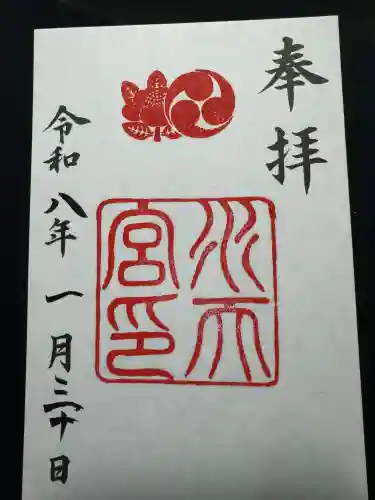 奉拝
水天宮印
令和八年一月三十日